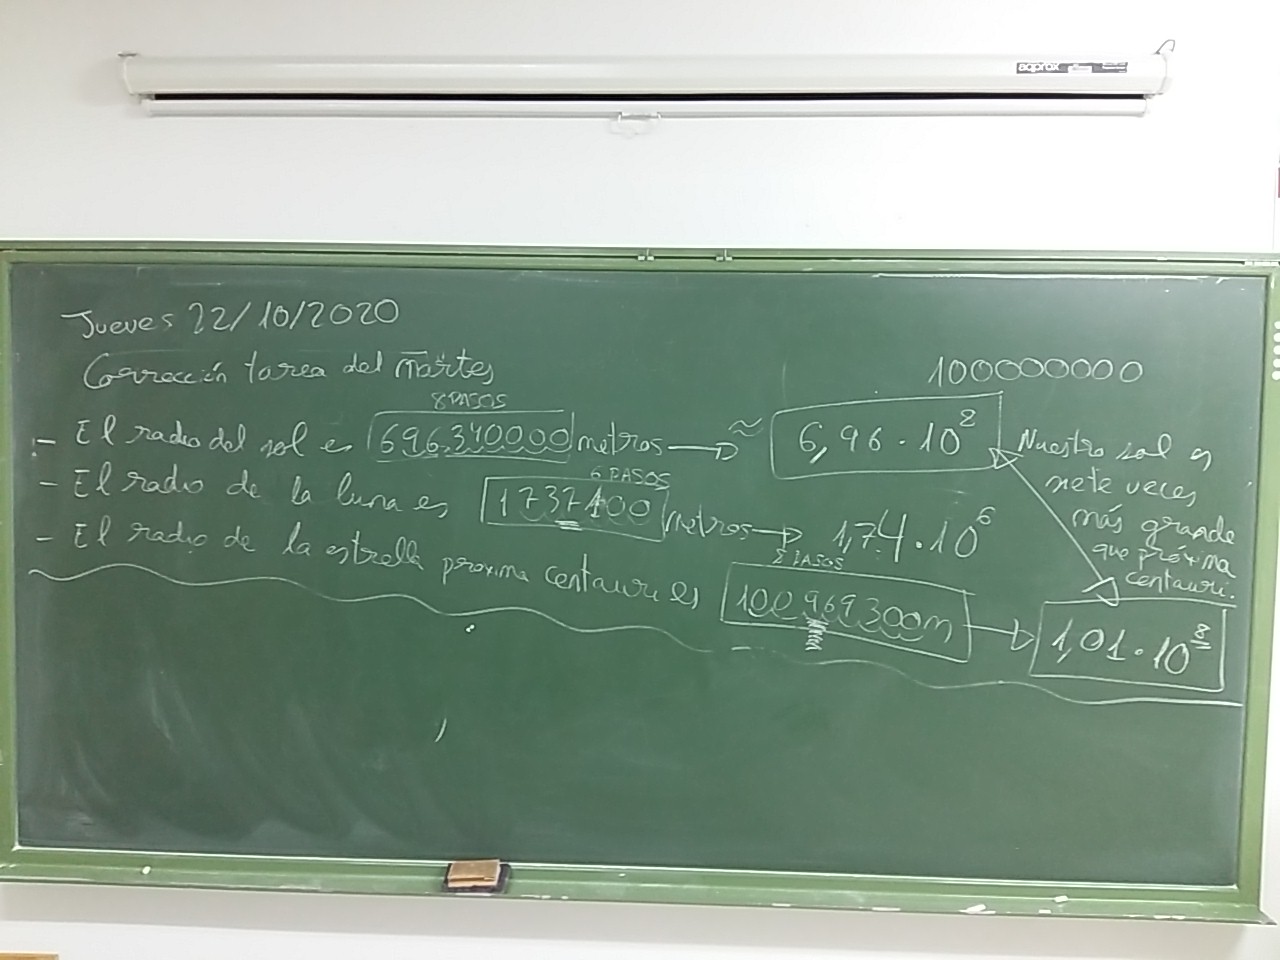 aprox
Jueves 22/10/2020
Corrección tarea del martes
100000000
8 PASOS
- El radio del sol es 696340000 metros → ≈ 6,96 · 10⁸
6 PASOS
- El radio de la luna es 1737400 metros → 1,74 · 10⁶
8 PASOS
- El radio de la estrella proxima centauri es 100969300m → 1,01 · 10⁸
Nuestro sol es
siete veces
más grande
que próxima
centauri.